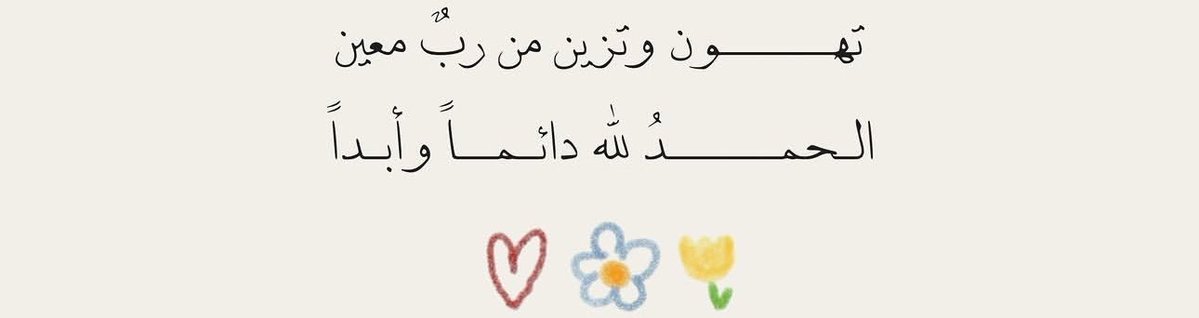 تهـــــــــون وتزين من ربٌ معين
الـحمـــــــــدُ لله دائـمـــاً وأبـداً